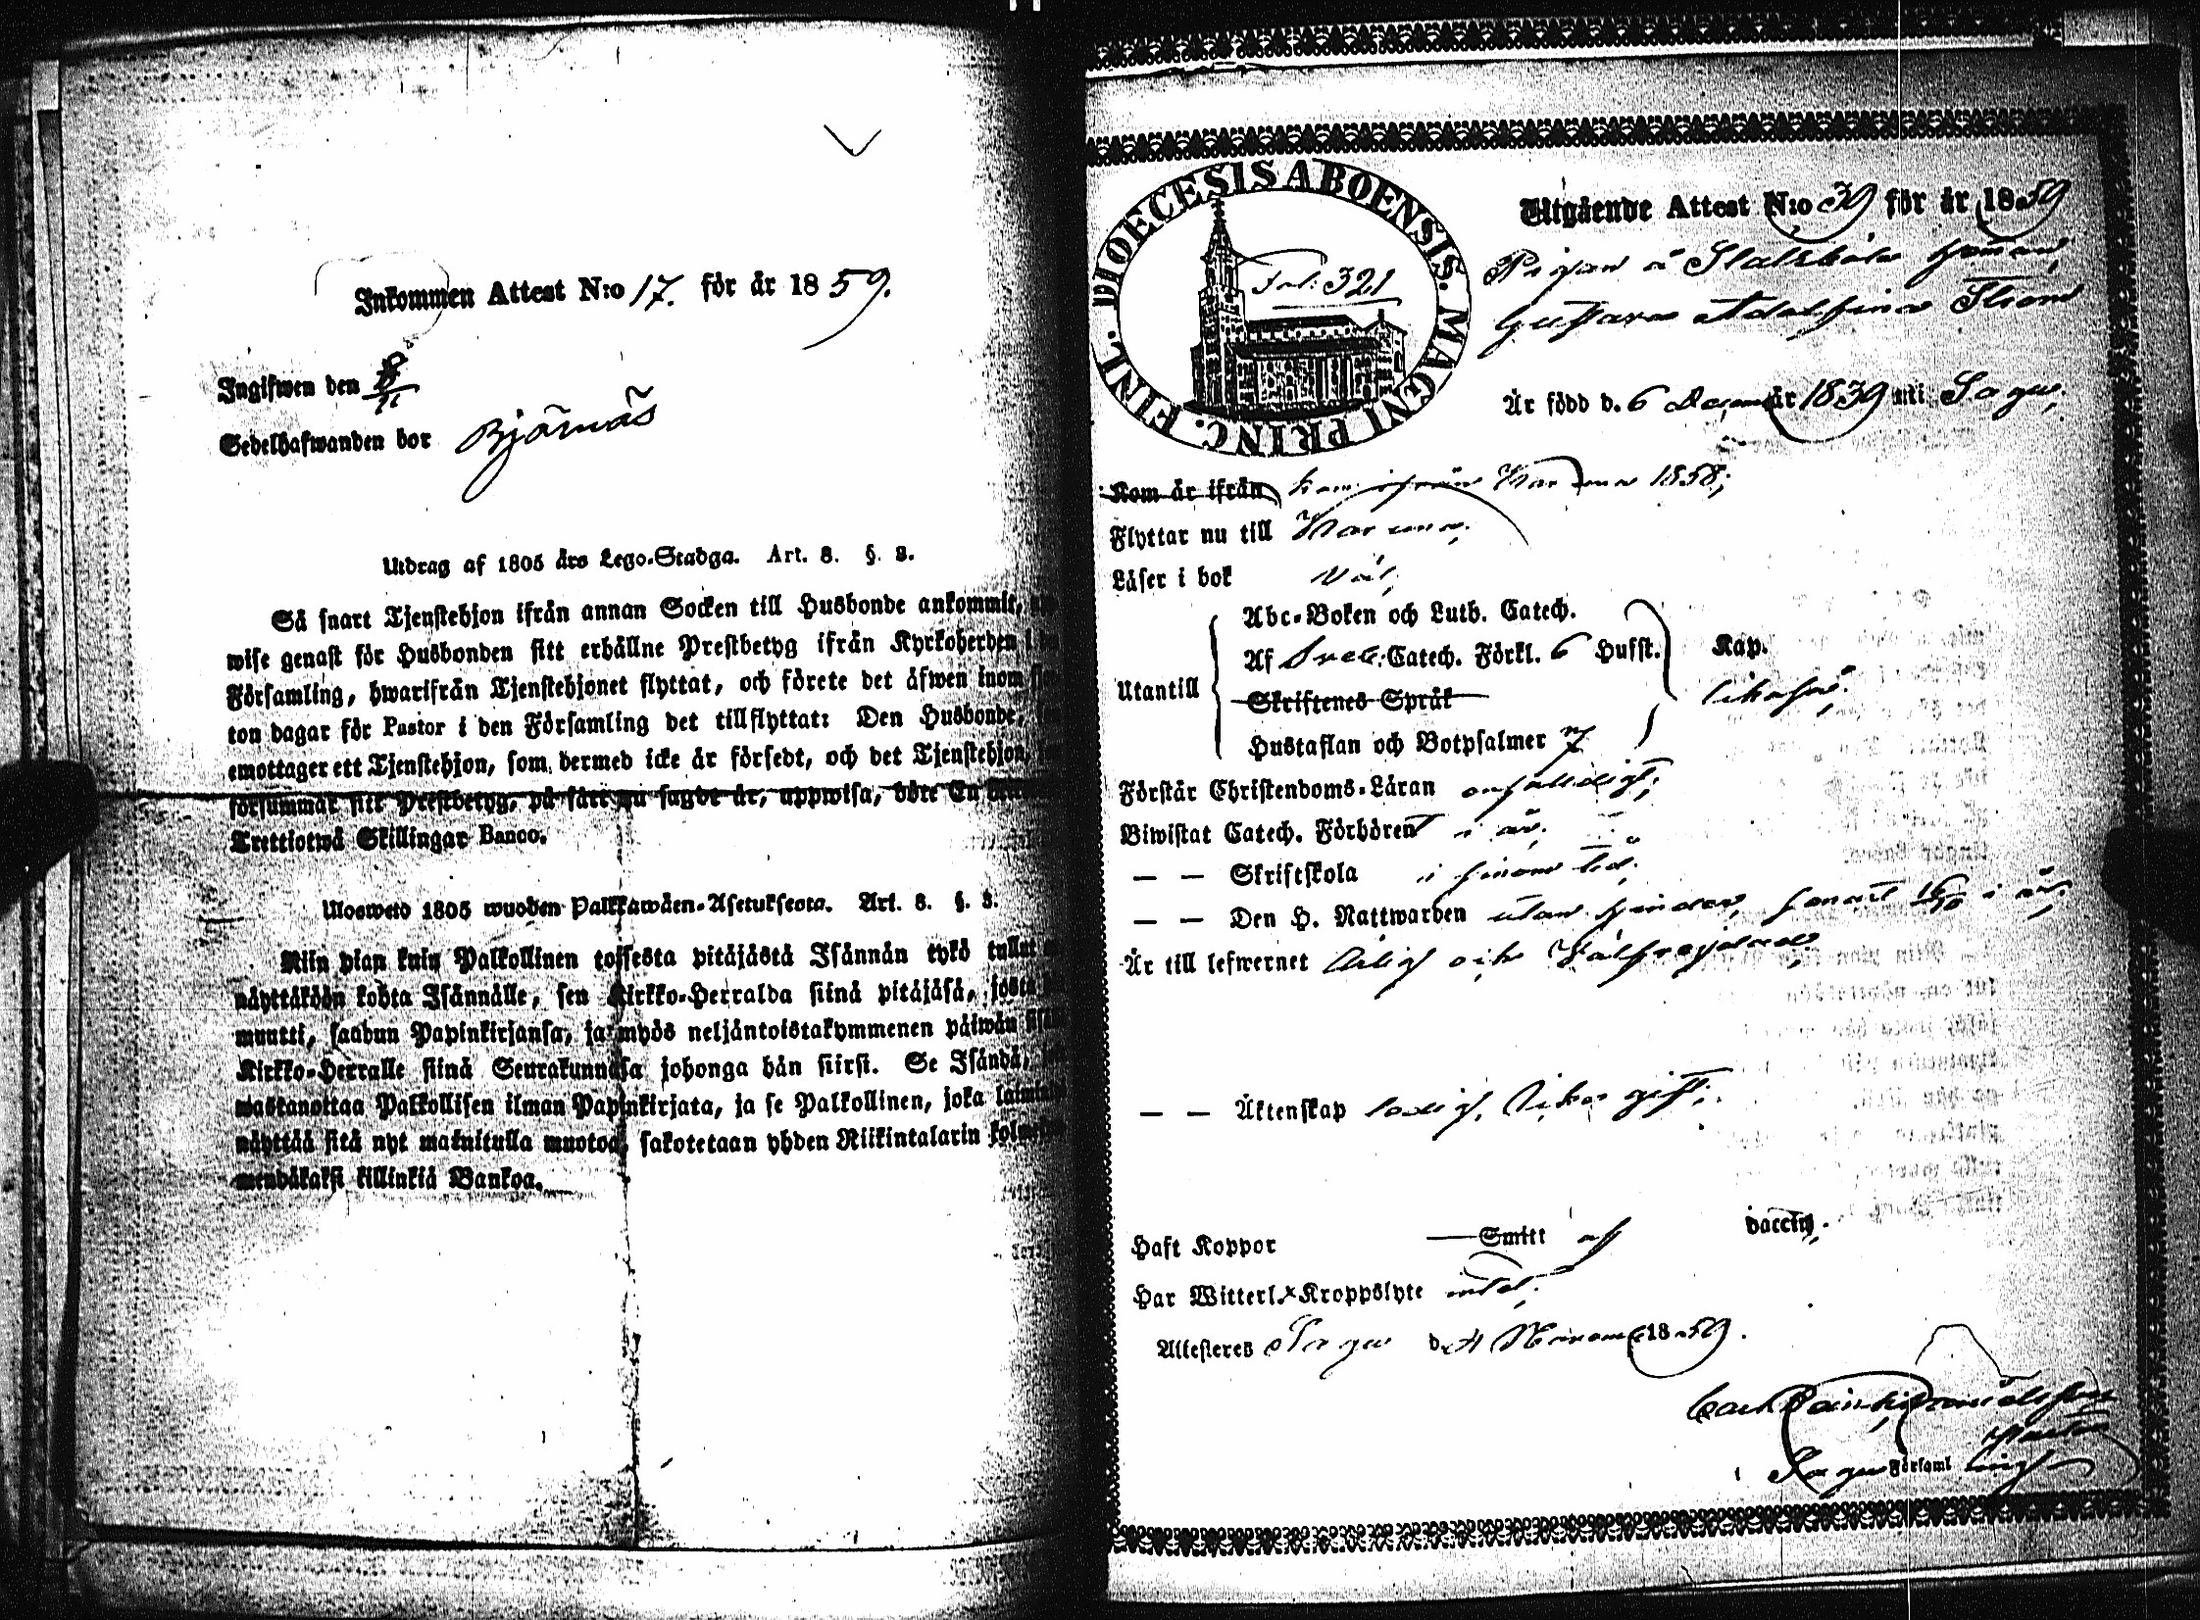 Inkommen Attest N:o 17. för år 1859.
Ingifwen den
Sedelhafwanden bor Bjärnäs
Utdrag af 1805 års Lego-Stadga. Art. 8. §. 3.
Så snart Tjenstehjon ifrån annan Socken till Husbonde ankommit,
wise genast för Husbonden sitt erhållne Prestbetyg ifrån Kyrkoherden i
Församling, hwarifrån Tjenstehjonet flyttat, och förete det äfwen inom
ton dagar för Pastor i den Församling det tillflyttat: Den Husbonde,
emottager ett Tjenstehjon, som dermed icke är försedt, och det Tjenstehjon,
försummar sitt Prestbetyg, på sätt nu sagdt är, uppwisa, böte En
Trettiotwå Skillingar Banco.
Ulosweto 1805 wuoden Palkkawäen-Asetuksesta. Art. 8. §. 3.
Niin pian kuin Palkollinen toisesta pitäjästä Isännän tykö tullut
näyttäköön kohta Isännälle, sen Kirkko-Herralda siinä pitäjäsä, josta
muutti, saadun Papinkirjansa, ja myös neljäntoistakymmenen päiwän
Kirkko-Herralle siinä Seurakunnasa johonga hän siirsi. Se Isändä,
wastanottaa Palkollisen ilman Papinkirjata, ja se Palkollinen, joka
näyttää sitä nyt mainitulla muotoa, sakotetaan yhden Riikintalarin
mendäkaksi killinkiä Bankoa.
DIOECESIS ABOENSIS. MAGNI PRINC. FINL.
Fol: 321
Utgående Attest N:o 39 för år 1859
Pigan
Gustava Adolfina
Är född d. 6 år 1839 uti Sagu,
Kom är ifrån kom ifrån Karuna 1858;
Flyttar nu till Karuna;
Läser i bok väl;
Utantill
Abc-Boken och Luth. Catech.
Af Sveb: Catech. Förkl. 6 Hufst.
Skriftenes Språk
Hustaflan och Botpsalmer 7
Kap.
likaså;
Förstår Christendoms-Läran
Biwistat Catech. Förhören i år.
— — Skriftskola i sinom tid;
— — Den H. Nattwarden utan hinder, senast 16/10 i år;
Är till lefwernet ärlig och wälfrejdad;
— — Äktenskap ledig,
Haft Koppor — Smitt af vaccin;
Har Witterl. Kroppslyte
Attesteres Sagu d. 4 1859.
Carl
Sagu Församling